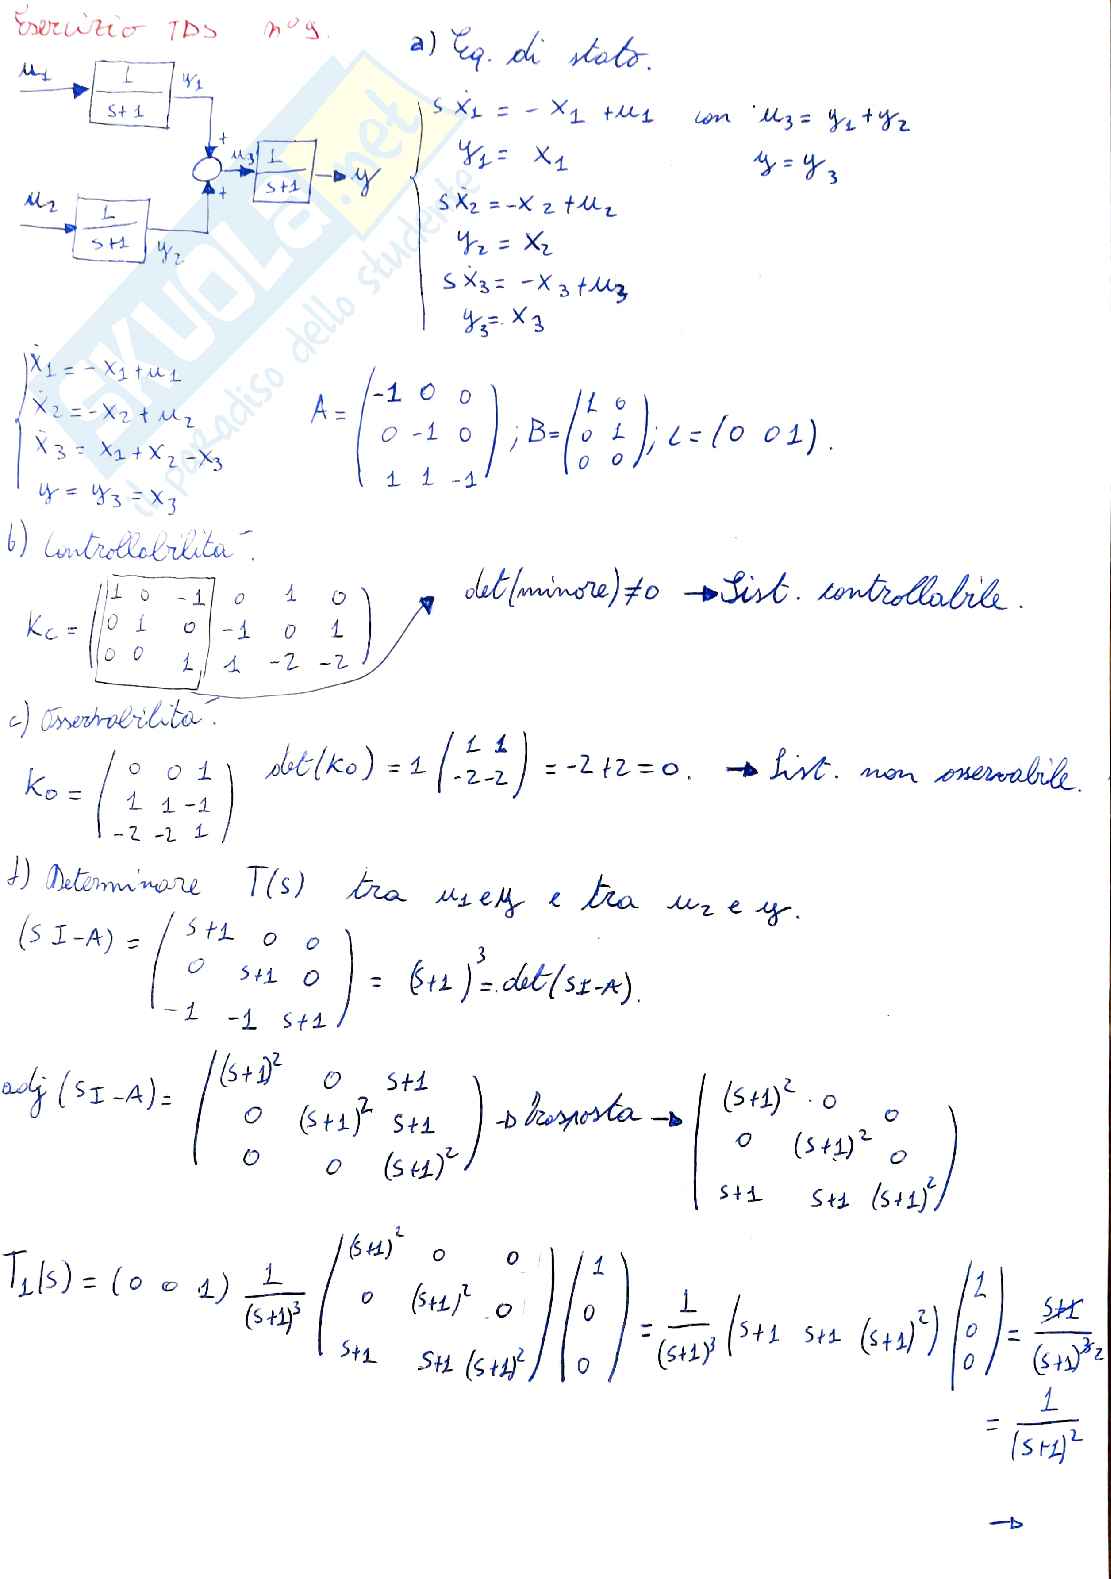 Esercizio TDS n°9.
a) Eq. di stato.
u1 1/(s+1) y1
u2 1/(s+1) y2
+ + u3 1/(s+1) y
sẋ1 = - x1 + u1 con u3 = y1 + y2
y1 = x1 y = y3
sẋ2 = -x2 + u2
y2 = x2
sẋ3 = -x3 + u3
y3 = x3
SKUOLA.net
il paradiso dello studente
ẋ1 = - x1 + u1
ẋ2 = -x2 + u2
ẋ3 = x1 + x2 - x3
y = y3 = x3
A = (-1 0 0; 0 -1 0; 1 1 -1); B = (1 0; 0 1; 0 0); C = (0 0 1).
b) Controllabilità.
Kc = (1 0 -1 0 1 0; 0 1 0 -1 0 1; 0 0 1 1 -2 -2) det(minore) ≠ 0 → Sist. controllabile.
c) Osservabilità.
Ko = (0 0 1; 1 1 -1; -2 -2 1) det(Ko) = 1 (1 1; -2 -2) = -2+2 = 0. → Sist. non osservabile.
d) Determinare T(s) tra u1 e y e tra u2 e y.
(sI-A) = (s+1 0 0; 0 s+1 0; -1 -1 s+1) = (s+1)^3 = det(sI-A).
adj(sI-A) = ((s+1)^2 0 s+1; 0 (s+1)^2 s+1; 0 0 (s+1)^2) → Trasposta → ((s+1)^2 0 0; 0 (s+1)^2 0; s+1 s+1 (s+1)^2)
T1(s) = (0 0 1) 1/(s+1)^3 ((s+1)^2 0 0; 0 (s+1)^2 0; s+1 s+1 (s+1)^2) (1; 0; 0) = 1/(s+1)^3 (s+1 s+1 (s+1)^2) (1; 0; 0) = s+1/(s+1)^3 2
= 1/(s+1)^2
→